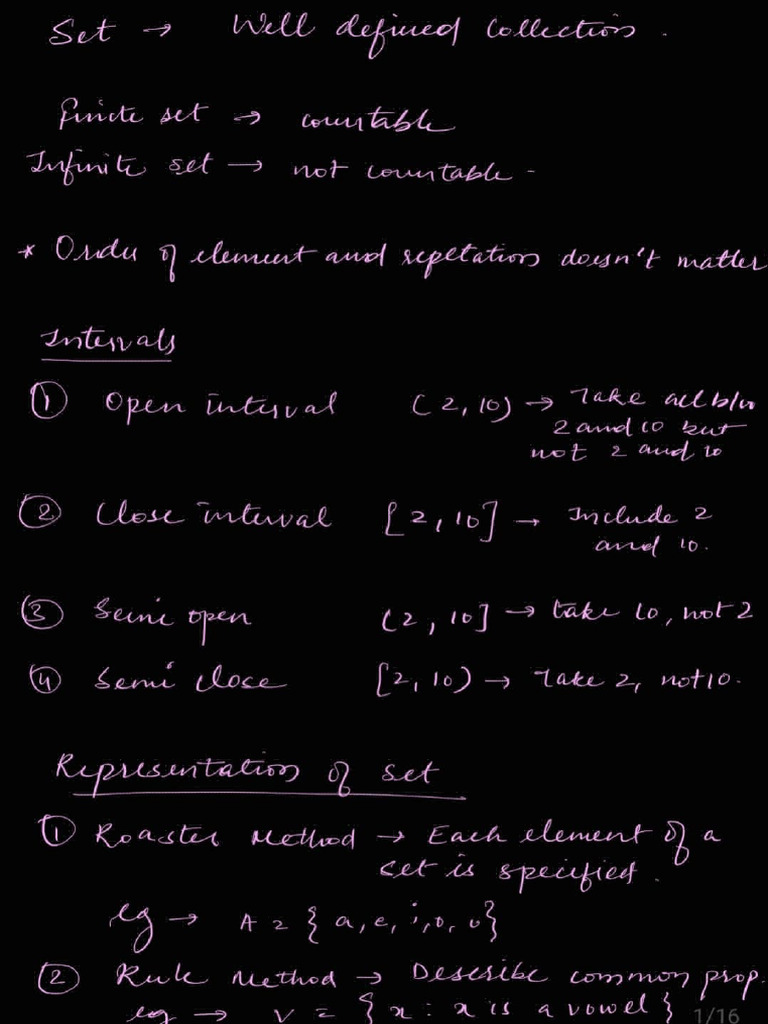 Set → Well defined Collection.
finite set → countable
Infinite set → not countable -
* Order of element and repetation doesn't matter
Intervals
① Open interval (2, 10) → Take all b/w
2 and 10 but
not 2 and 10
② Close interval [2, 10] → Include 2
and 10.
③ Semi open (2, 10] → take 10, not 2
④ Semi close [2, 10) → Take 2, not 10.
Representation of set
① Roaster Method → Each element of a
set is specified.
eg → A = {a, e, i, o, u}
② Rule Method → Describe common prop.
eg → V = {x : x is a vowel}
1/16